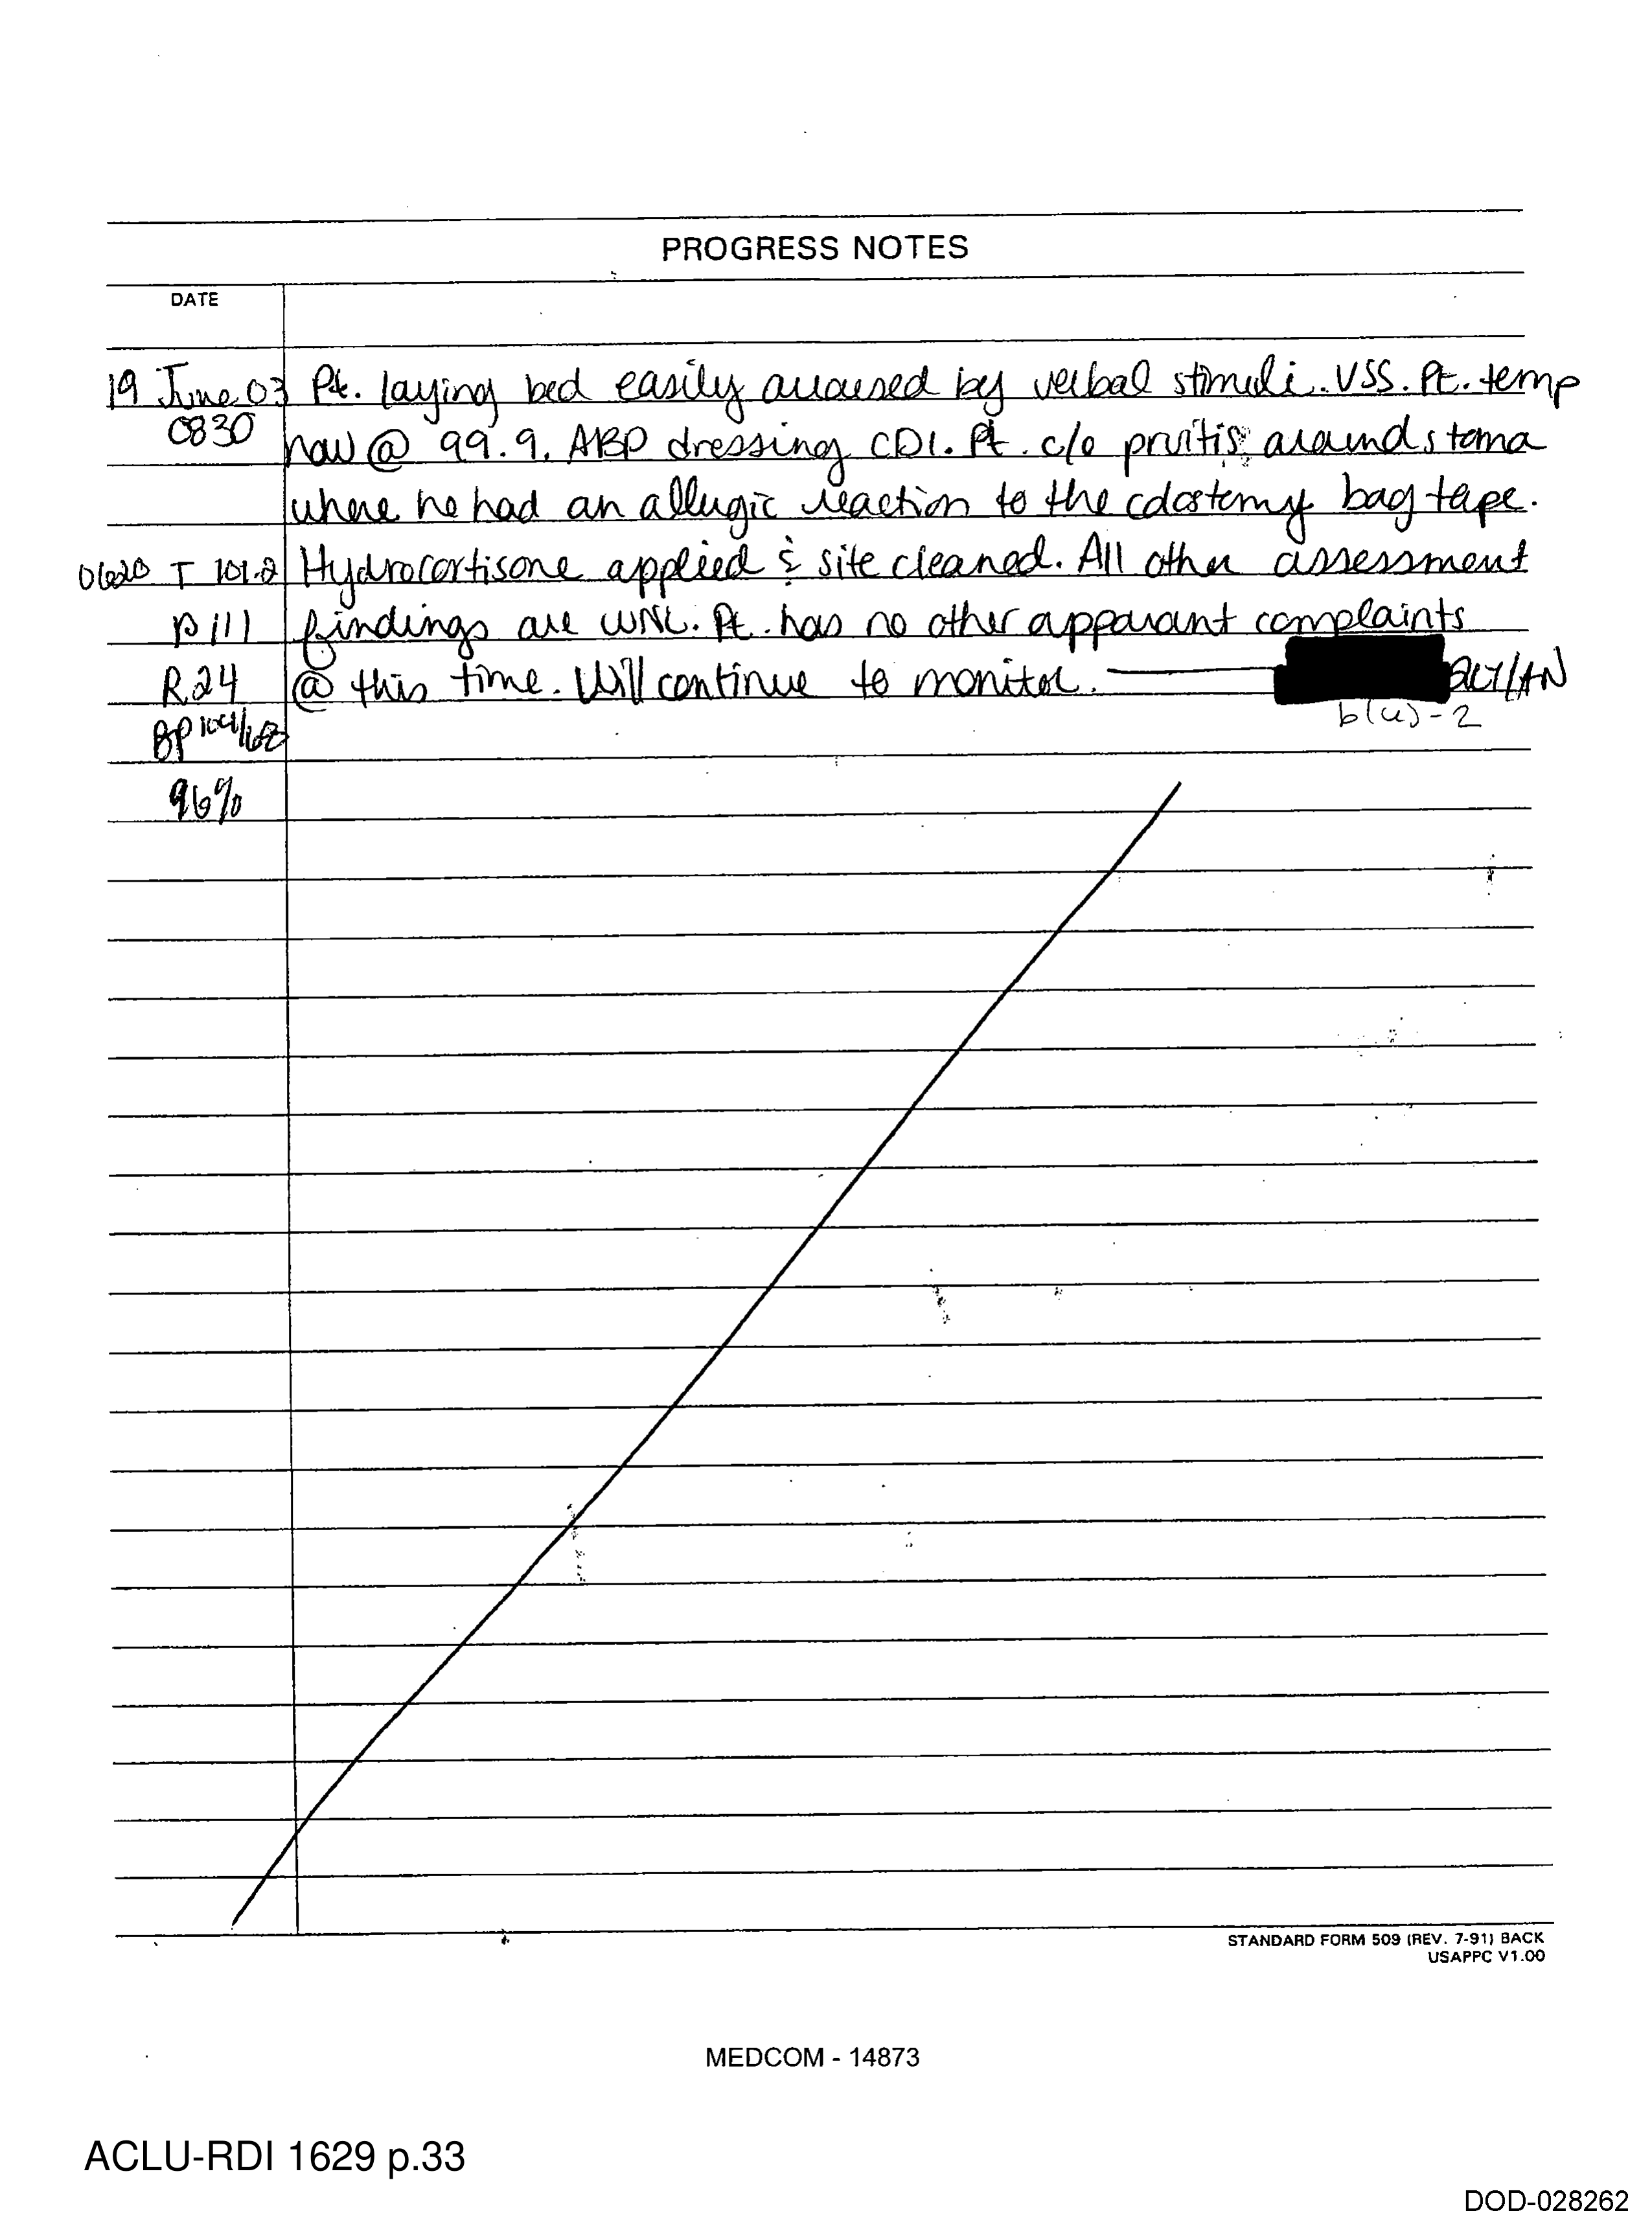 PROGRESS NOTES
DATE
19 June 03 Pt. laying bed easily aroused by verbal stimuli. VSS. Pt. temp
0830 now @ 99.9. ABD dressing CDI. Pt. c/o pruitis around stoma
where he had an allergic reaction to the colostomy bag tape.
0620 T 101.2 Hydrocortisone applied & site cleaned. All other assessment
P 111 findings are WNL. Pt. has no other apparant complaints
R 24 @ this time. Will continue to monitor. 2LT/AN
b(6)-2
BP 104/68
96%
STANDARD FORM 509 (REV. 7-91) BACK
USAPPC V1.00
MEDCOM - 14873
ACLU-RDI 1629 p.33
DOD-028262